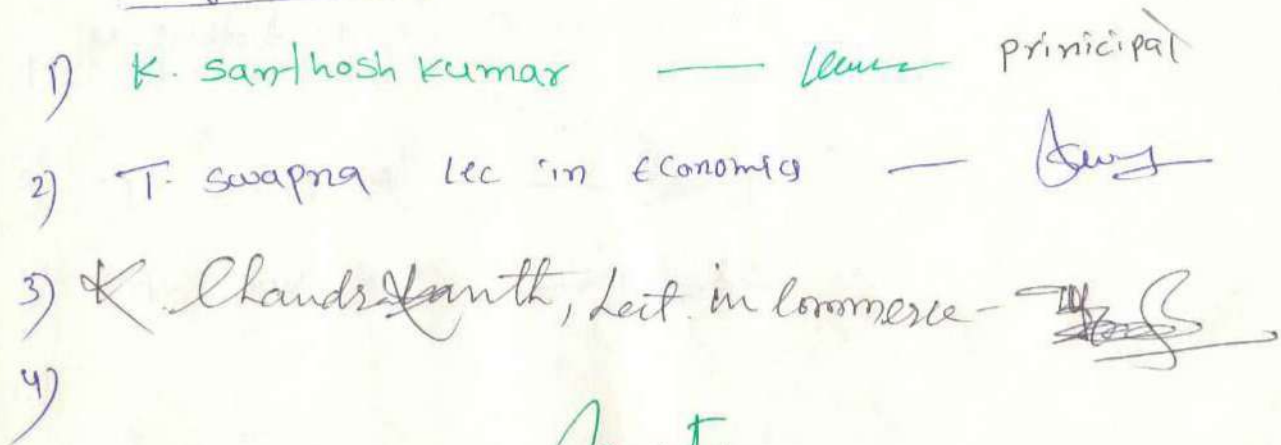 1) K. Santhosh Kumar — prinicipal
2) T. Swapna Lec in Economics —
3) K. Chandrakanth, Lect. in Commerce -
4)